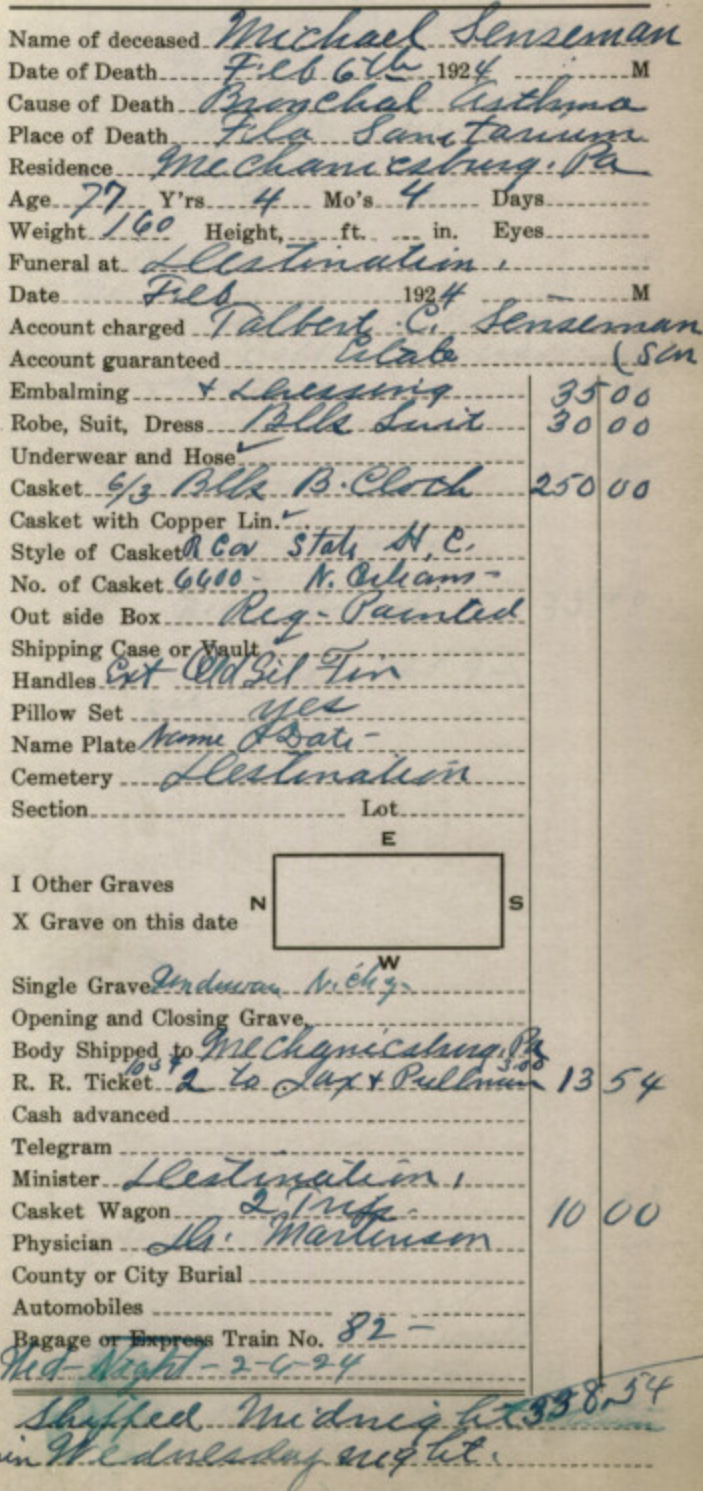 Name of deceased Michael Senseman
Date of Death Feb 6th 1924 M
Cause of Death Bronchal Asthma
Place of Death Fla Sanitarium
Residence Mechanicsburg. Pa
Age 77 Y'rs 4 Mo's 4 Days
Weight 160 Height, ft. in. Eyes
Funeral at Destination.
Date Feb 1924 M
Account charged Talbert C. Senseman
Account guaranteed Estate (Son
Embalming & Dressing 35 00
Robe, Suit, Dress Blk Suit 30 00
Underwear and Hose ✓
Casket 6/3 Blk B. Cloth 250 00
Casket with Copper Lin. ✓
Style of Casket R Cor State H. C.
No. of Casket 6600 - N. Orleans -
Out side Box Reg - Painted
Shipping Case or Vault
Handles Ext Old Sil Tin
Pillow Set yes
Name Plate Name & Date -
Cemetery Destination
Section Lot
E
I Other Graves
N S
X Grave on this date
W
Single Grave
Opening and Closing Grave,
Body Shipped to Mechanicsburg, Pa
R. R. Ticket 2 to Jax & Pullman 3.00 13 54
Cash advanced
Telegram
Minister Destination.
Casket Wagon 2 Trips - 10 00
Physician Dr. Martinson
County or City Burial
Automobiles
Bagage or Express Train No. 82 -
Wed - Night - 2-6-24
338.54
Shipped Midnight
in Wednesday night.